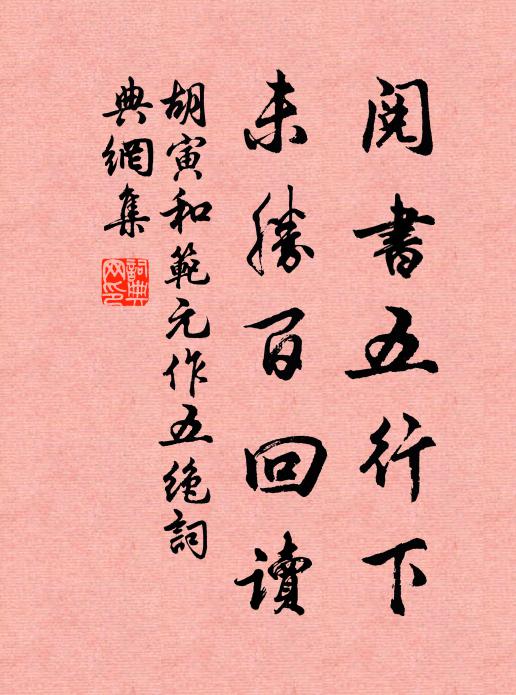 閱書五行下
未勝百回讀
胡寅和範元作五絶詞
典網集
詞典網印